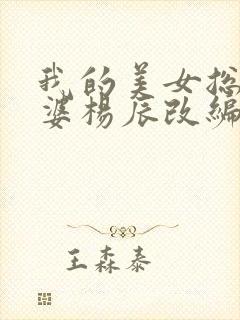 我的美女总
婆杨辰改编
王森泰